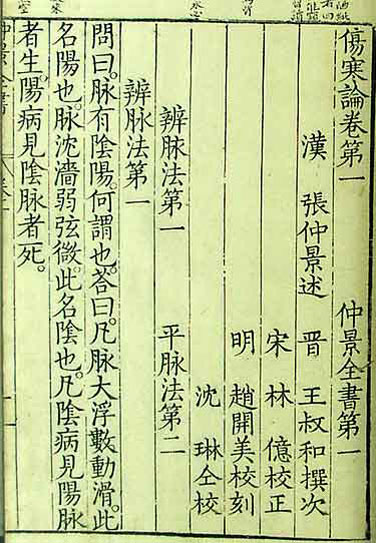 傷寒論卷第一 仲景全書第一
漢 張仲景述 晋 王叔和撰次
宋 林 億校正
明 趙開美校刻
沈 琳仝校
辨脉法第一 平脉法第二
辨脉法第一
問曰。脉有陰陽。何謂也。荅曰。凡脉大浮數動滑。此
名陽也。脉沈濇弱弦微。此名陰也。凡陰病見陽脉
者生。陽病見陰脉者死。